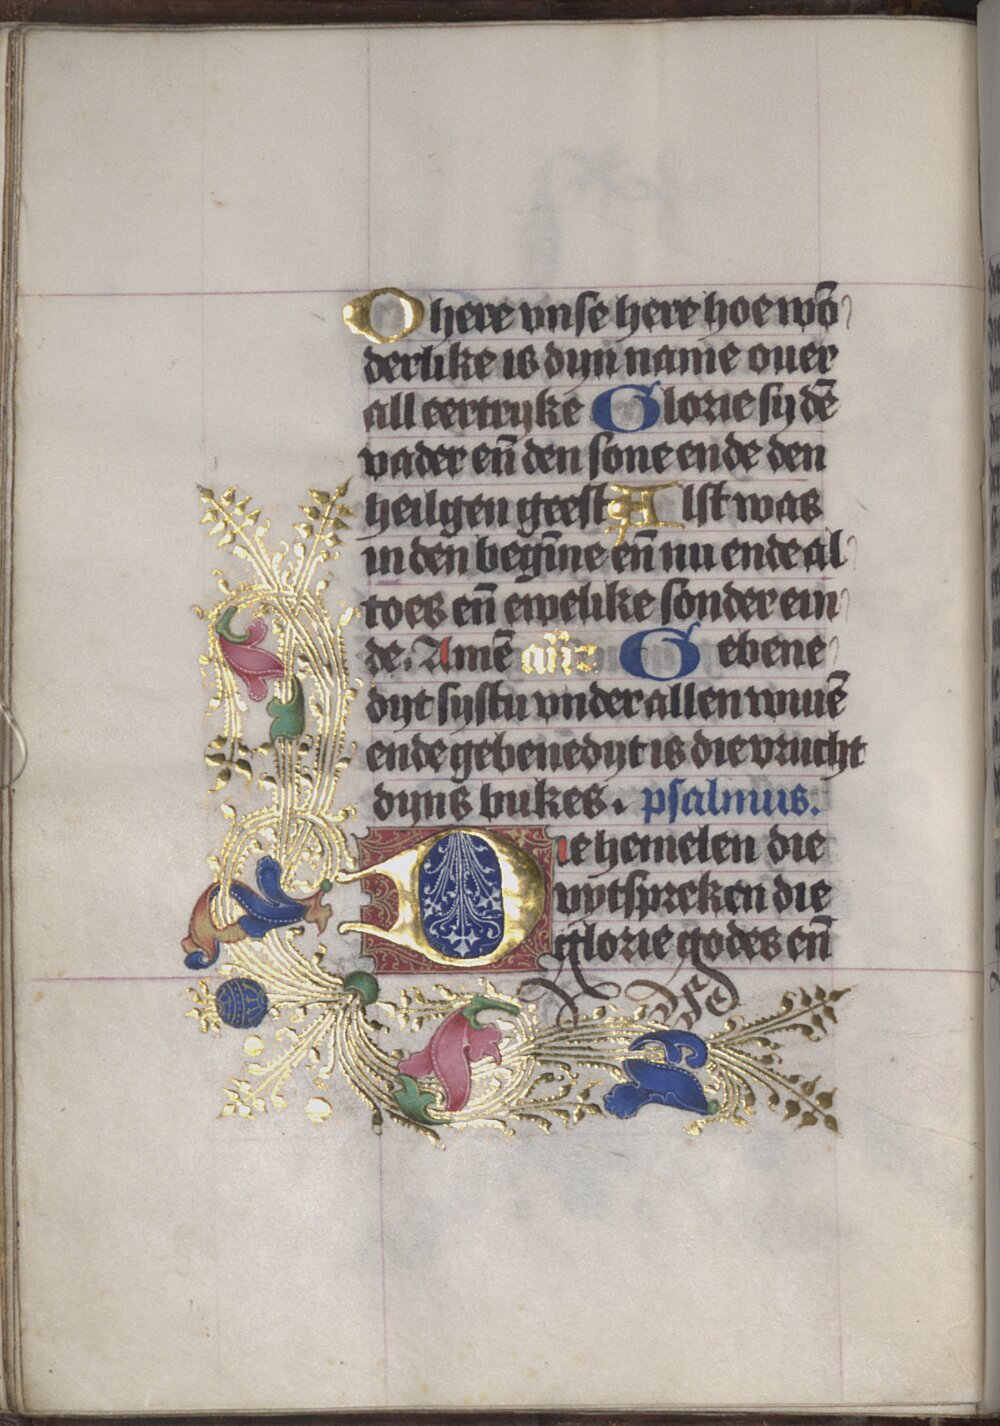 O here vnse here hoe wō
derlike is dyn name ouer
all eertryke Glorie sy dē
vader en̄ den sone ende den
heilgen geest Alst was
in den begīne en̄ nu ende al
toes en̄ ewelike sonder ein
de. Amē an̄ Gebene
dyt systu vnder allen wiuē
ende gebenedyt is die vrucht
dyns bukes. psalmus.
Die hemelen die
vytspreken die
glorie godes en̄